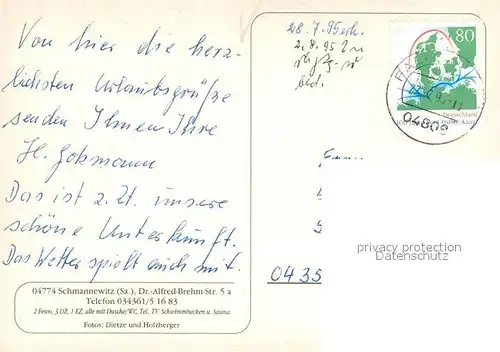 Von hier die herz-
lichsten Urlaubsgrüße
senden Ihnen Ihre
Das ist z. Zt. unsere
schöne Unterkunft.
Das Wetter spielt auch mit.
04774 Schmannewitz (Sa.), Dr.-Alfred-Brehm-Str. 5 a
Telefon 034361/5 16 83
2 Fewo, 3 DZ, 1 EZ, alle mit Dusche/WC, Tel., TV. Schwimmbecken u. Sauna
Fotos: Dietze und Holzberger
28.7.95
2.8.95
80
Deutschland
04808
privacy protection
Datenschutz
0435